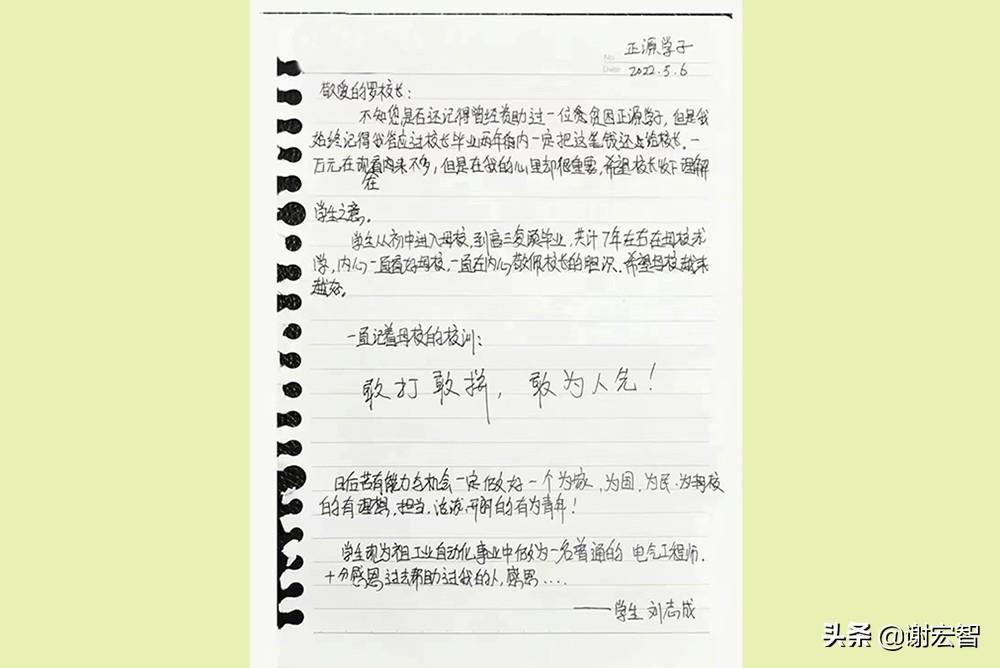 正源学子
No
Date 2022.5.6
敬爱的罗校长:
不知您是否还记得曾经资助过一位贫困正源学子,但是我
始终记得我答应过校长毕业两年内一定把这笔钱还给校长。一
万元在现在看来不多,但是在我的心里却很重要,希望校长收下理解
学生之意。
学生从初中进入母校,到高三复读毕业,共计7年左右在母校求
学,内心一直看好母校,一直在内心敬佩校长的胆识。希望母校越来
越好。
一直记着母校的校训:
敢打敢拼,敢为人先!
日后若有能力与机会一定做好一个为家、为国、为民、为母校
的有理想,担当,活泼开朗的有为青年!
学生现为祖工业自动化事业中做为一名普通的 电气工程师.
十分感恩过去帮助过我的人,感恩....
——学生 刘志成
头条 @谢宏智